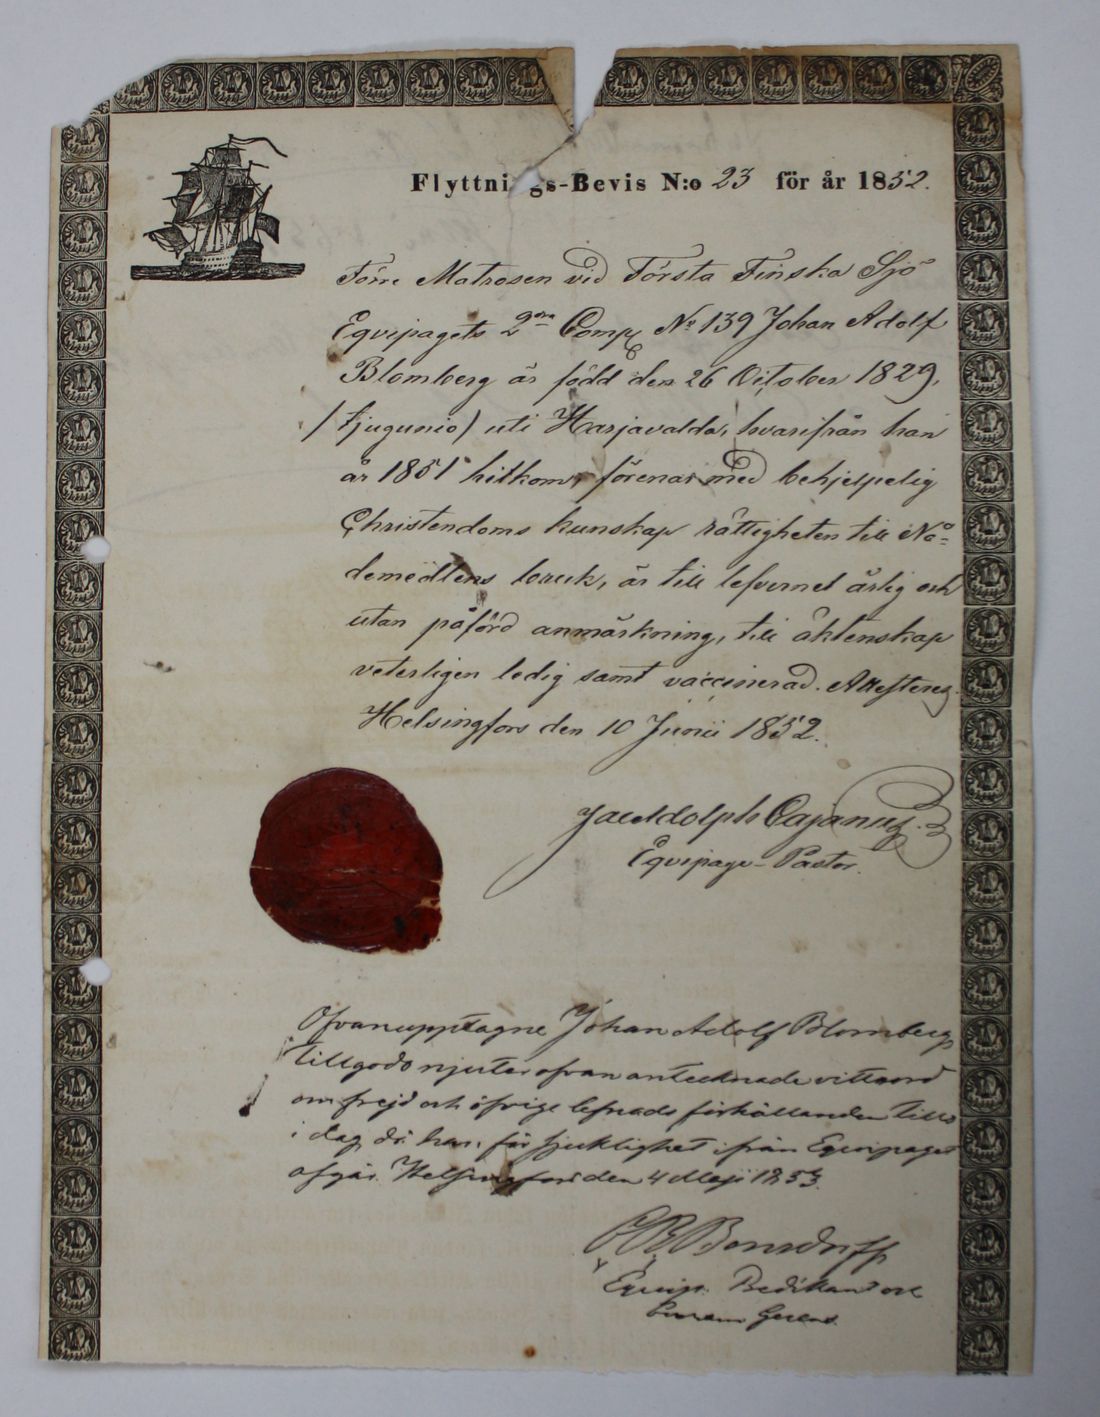 Flyttnings-Bevis N:o 23 för år 1852.
Förre Matrosen vid Första Finska Sjö
Eqvipagets 2dra Comp. No 139 Johan Adolf
Blomberg är född den 26 October 1829,
/tjugunio/ uti Harjavalda, hvarifrån han
år 1851 hitkom, förenar med behjelpelig
Christendoms kunskap rättigheten till Nå=
demedlens bruk, är till lefvernet ärlig och
utan påförd anmärkning, till äktenskap
veterligen ledig samt vaccinerad. Attesterer
Helsingfors den 10 Junii 1852.
Jac Adolph Cajanus.
Eqvipage-Pastor.
Ofvanupptagne Johan Adolf Blomberg
tillgodo njuter ofvan antecknade vittnord
om frejd och öfrige lefnads förhållanden tills
i dag då han för sjuklighet ifrån Eqvipaget
afgår. Helsingfors den 4 Maji 1853.
Bonsdorff
Eqvip. Predikant ock